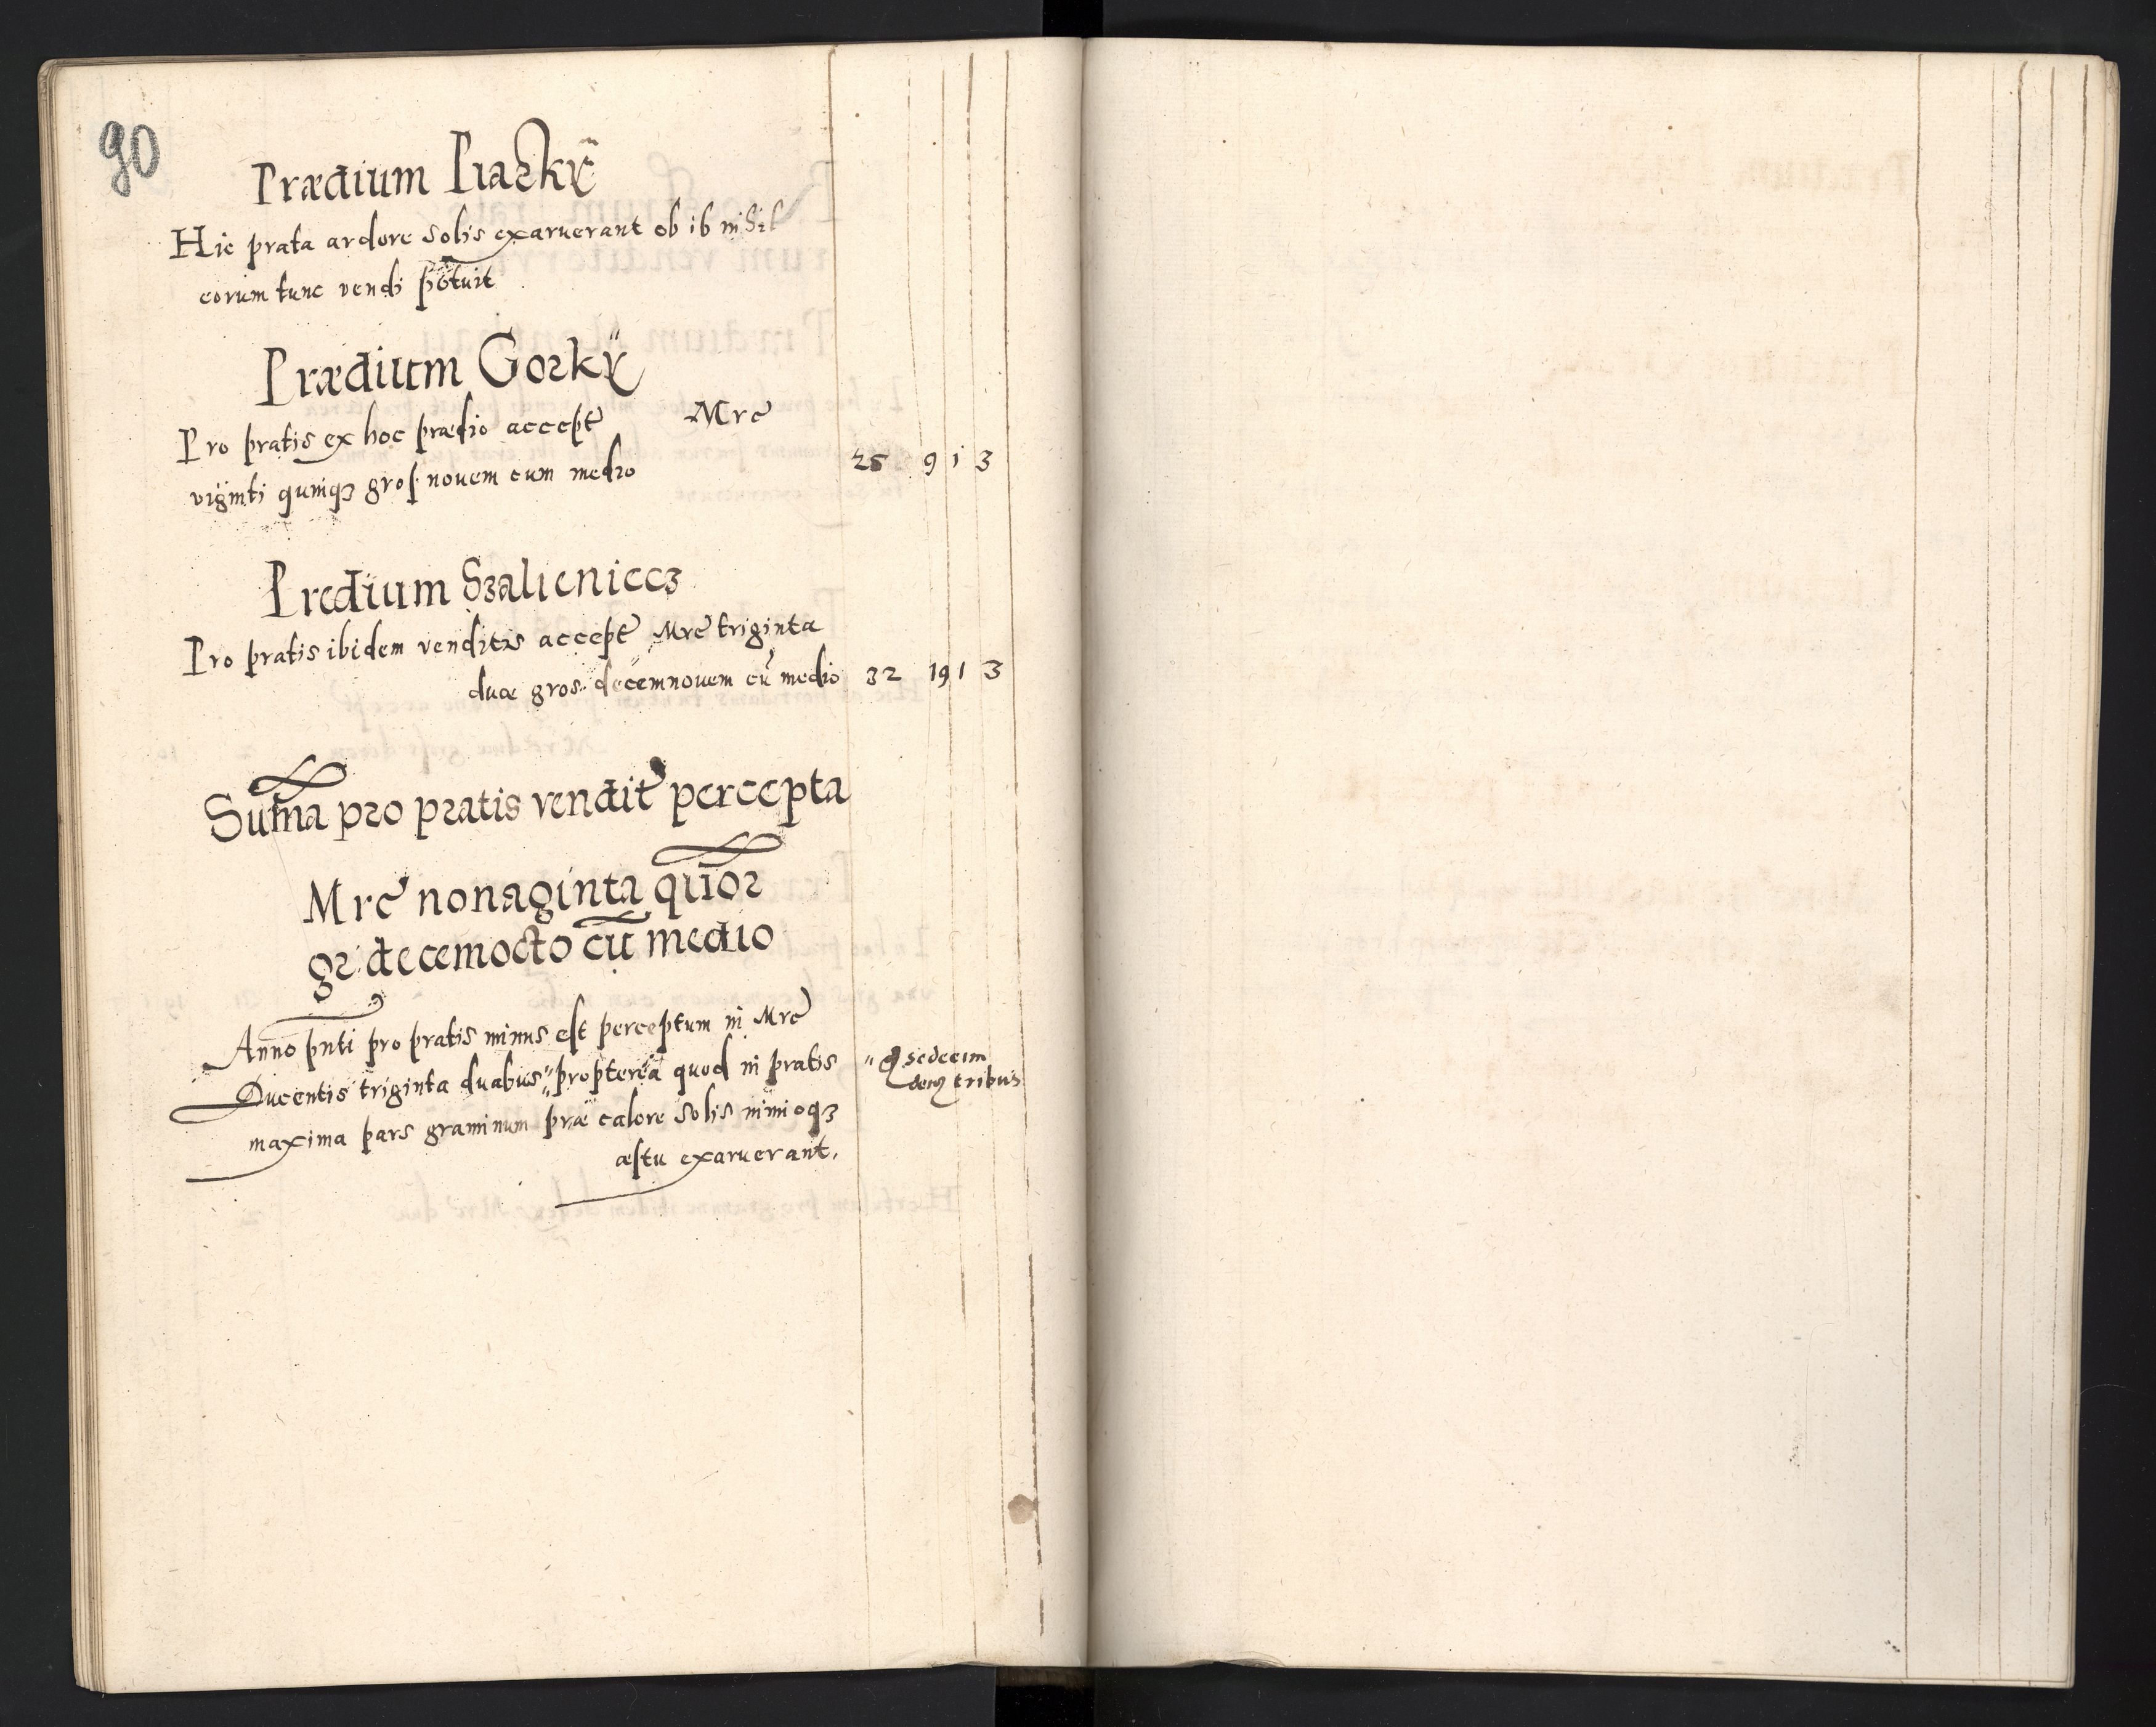 90
Prædium Piaskÿ
Hic prata ardore solis exaruerant ob id nihil
eorum tunc vendi potuit
Prædium Gorkÿ
Pro pratis ex hoc prædio accept Mrc
viginti quinqȝ gros. novem cum medio 25 9 1 3
Predium Szalieniecz
Pro pratis ibidem venditis accept Mrc triginta
duæ gros. decemnovem cū medio 32 19 1 3
Sūma pro pratis vendit percepta
Mrc nonaginta qūor
gr: decemocto cū medio
Anno pnti pro pratis minus est perceptum in Mrc
Ducentis triginta duabus " propterea quod in pratis " gr sedecim
denȝ tribus
maxima pars graminum præ calore solis nimioqȝ
æstu exaruerant.